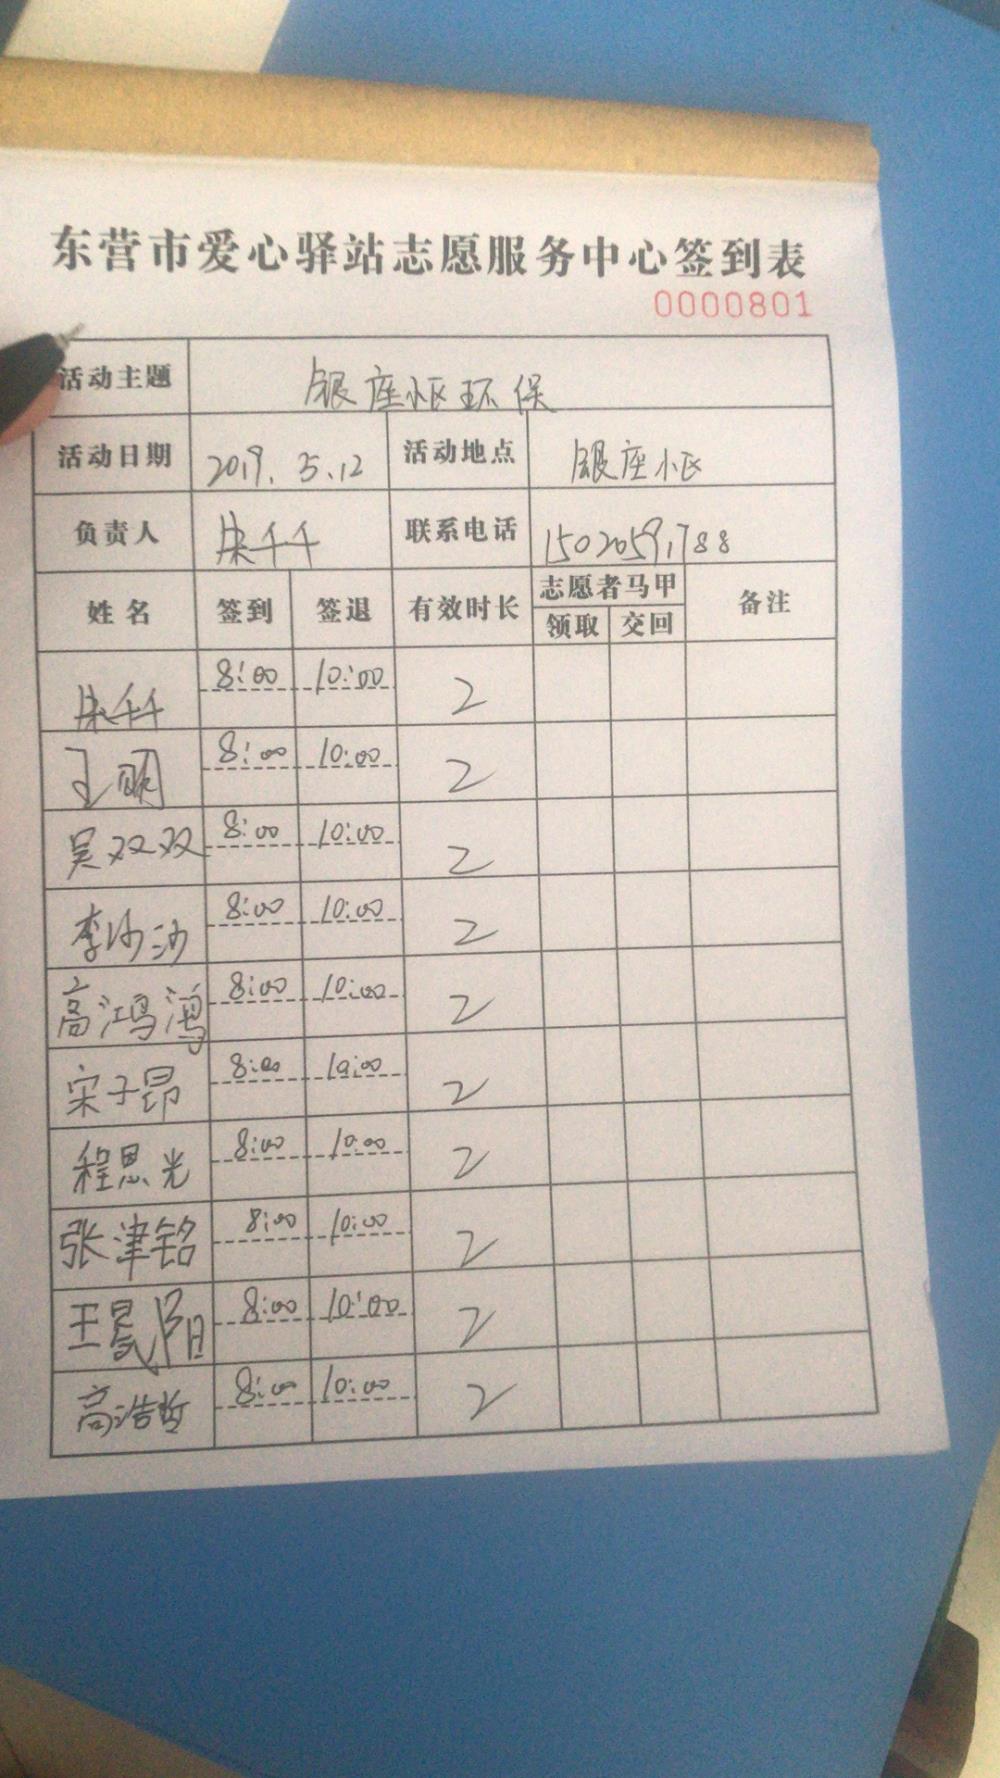 东营市爱心驿站志愿服务中心签到表
0000801
活动主题 银座小区环保
活动日期 2019.5.12 活动地点 银座小区
负责人 千千 联系电话 15020591788
姓名 签到 签退 有效时长 志愿者马甲 备注
领取 交回
千千 8:00 10:00 2
王明 8:00 10:00 2
吴双双 8:00 10:00 2
李沙沙 8:00 10:00 2
高鸿鸿 8:00 10:00 2
宋子昂 8:00 10:00 2
程思光 8:00 10:00 2
张津铭 8:00 10:00 2
王昊阳 8:00 10:00 2
高浩哲 8:00 10:00 2